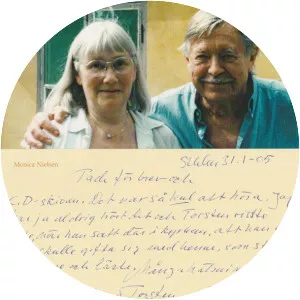 Monica Nielsen
Sthlm 31.1-05
Tack för brev och
C.D-skivan. Det var så kul att höra. Jag
ju aldrig hört det och Torsten visste
när han satt där i kyrkan, att han
skulle gifta sig med henne, som
och läste. Många
Torsten